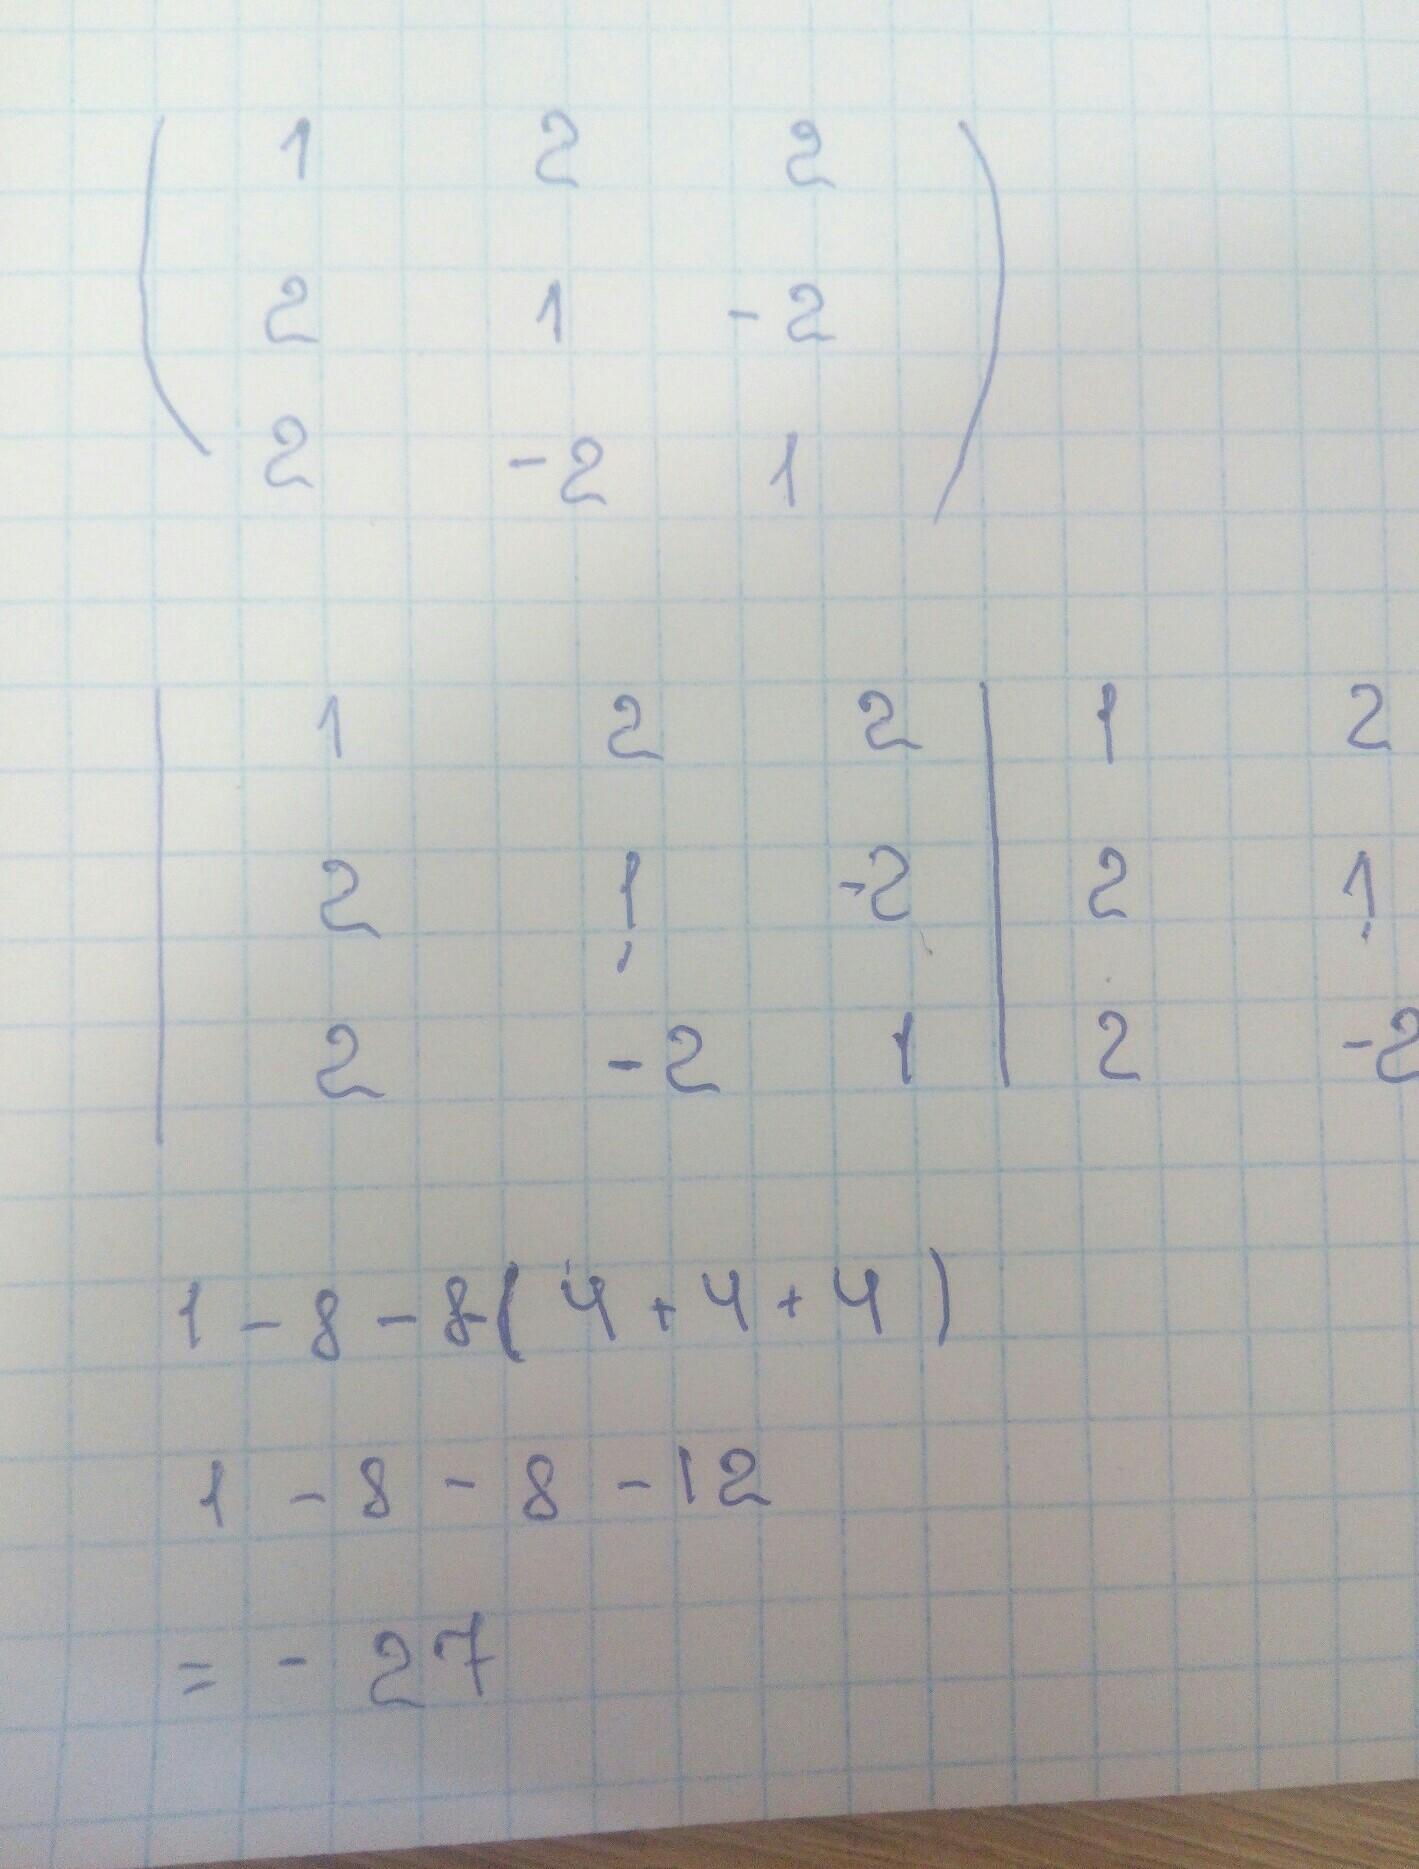 1 2 2
2 1 -2
2 -2 1
1 2 2 | 1 2
2 1 -2 | 2 1
2 -2 1 | 2 -2
1 - 8 - 8 - ( 4 + 4 + 4 )
1 - 8 - 8 - 12
= - 27